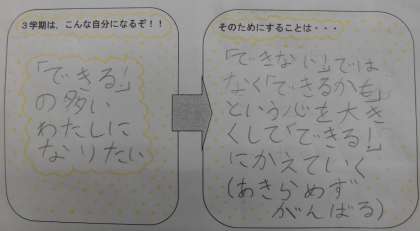 3学期は、こんな自分になるぞ！！
「できる！」
の多い
わたしに
なりたい
そのためにすることは・・・
「できない！」では
なく「できるかも」
という心を大き
くして「できる！」
にかえていく
(あきらめず
がんばる)